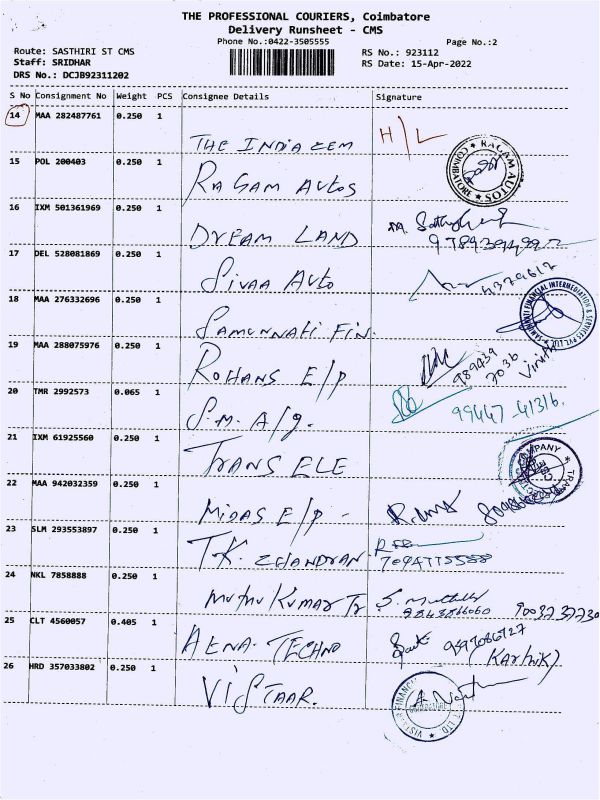 THE PROFESSIONAL COURIERS, Coimbatore
Delivery Runsheet - CMS
Phone No.:0422-3505555
Page No.:2
Route: SASTHIRI ST CMS
RS No.: 923112
Staff: SRIDHAR
RS Date: 15-Apr-2022
DRS No.: DCJB92311202
S No Consignment No Weight PCS Consignee Details Signature
14 MAA 282487761 0.250 1
THE INDIA CEM H/L
15 POL 200403 0.250 1
RAGAM AUTOS
RAGAM AUTOS COIMBATORE
16 IXM 501361969 0.250 1
DREAM LAND
17 DEL 528081869 0.250 1
SIVAA AUTO
18 MAA 276332696 0.250 1
SAMUNNATI FIN.
SAMUNNATI FINANCIAL INTERMEDIATION & SERVICES PVT LTD
19 MAA 288075976 0.250 1
ROHANS E/P
20 TMR 2992573 0.065 1
S.M. A/g. 99447-41316.
21 IXM 61925560 0.250 1
TRANS ELE
COMPANY
22 MAA 942032359 0.250 1
MIDAS E/P -
23 SLM 293553897 0.250 1
T.K. CHANDRAN
24 NKL 7858888 0.250 1
MUTHU KUMAR Tr
25 CLT 4560057 0.405 1
AENA. TECHNO
(Karthik)
26 HRD 357033802 0.250 1
VISTAAR.